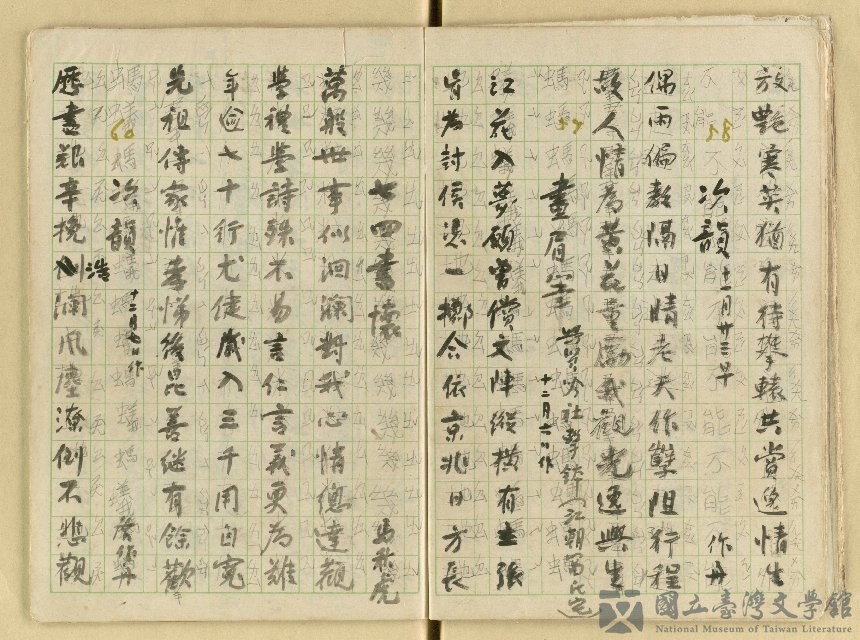 放艷寒英猶有待攀轅共賞逸情生
58 次韻 十一月廿三早 作丹
偶雨偏教隔日晴老天作孽阻行程
故人情為黃花重勵我觀光逸興生
59 畫眉筆 吟社擊鉢 江朝 十二月六日作
江花入夢願曾償文陣縱橫有主張
肯為封侯浪一擲合依京兆日方長
七四書懷 馬
萬般世事似洄瀾對我心情總達觀
學禮學詩殊不易言仁言義更為難
年逾七十行尤健歲入三千用自寬
先祖傳家惟孝悌後昆善繼有餘歡
60 次韻 十二月七日作
歷盡艱辛挽浩瀾風塵潦倒不悲觀
國立臺灣文學館
National Museum of Taiwan Literature